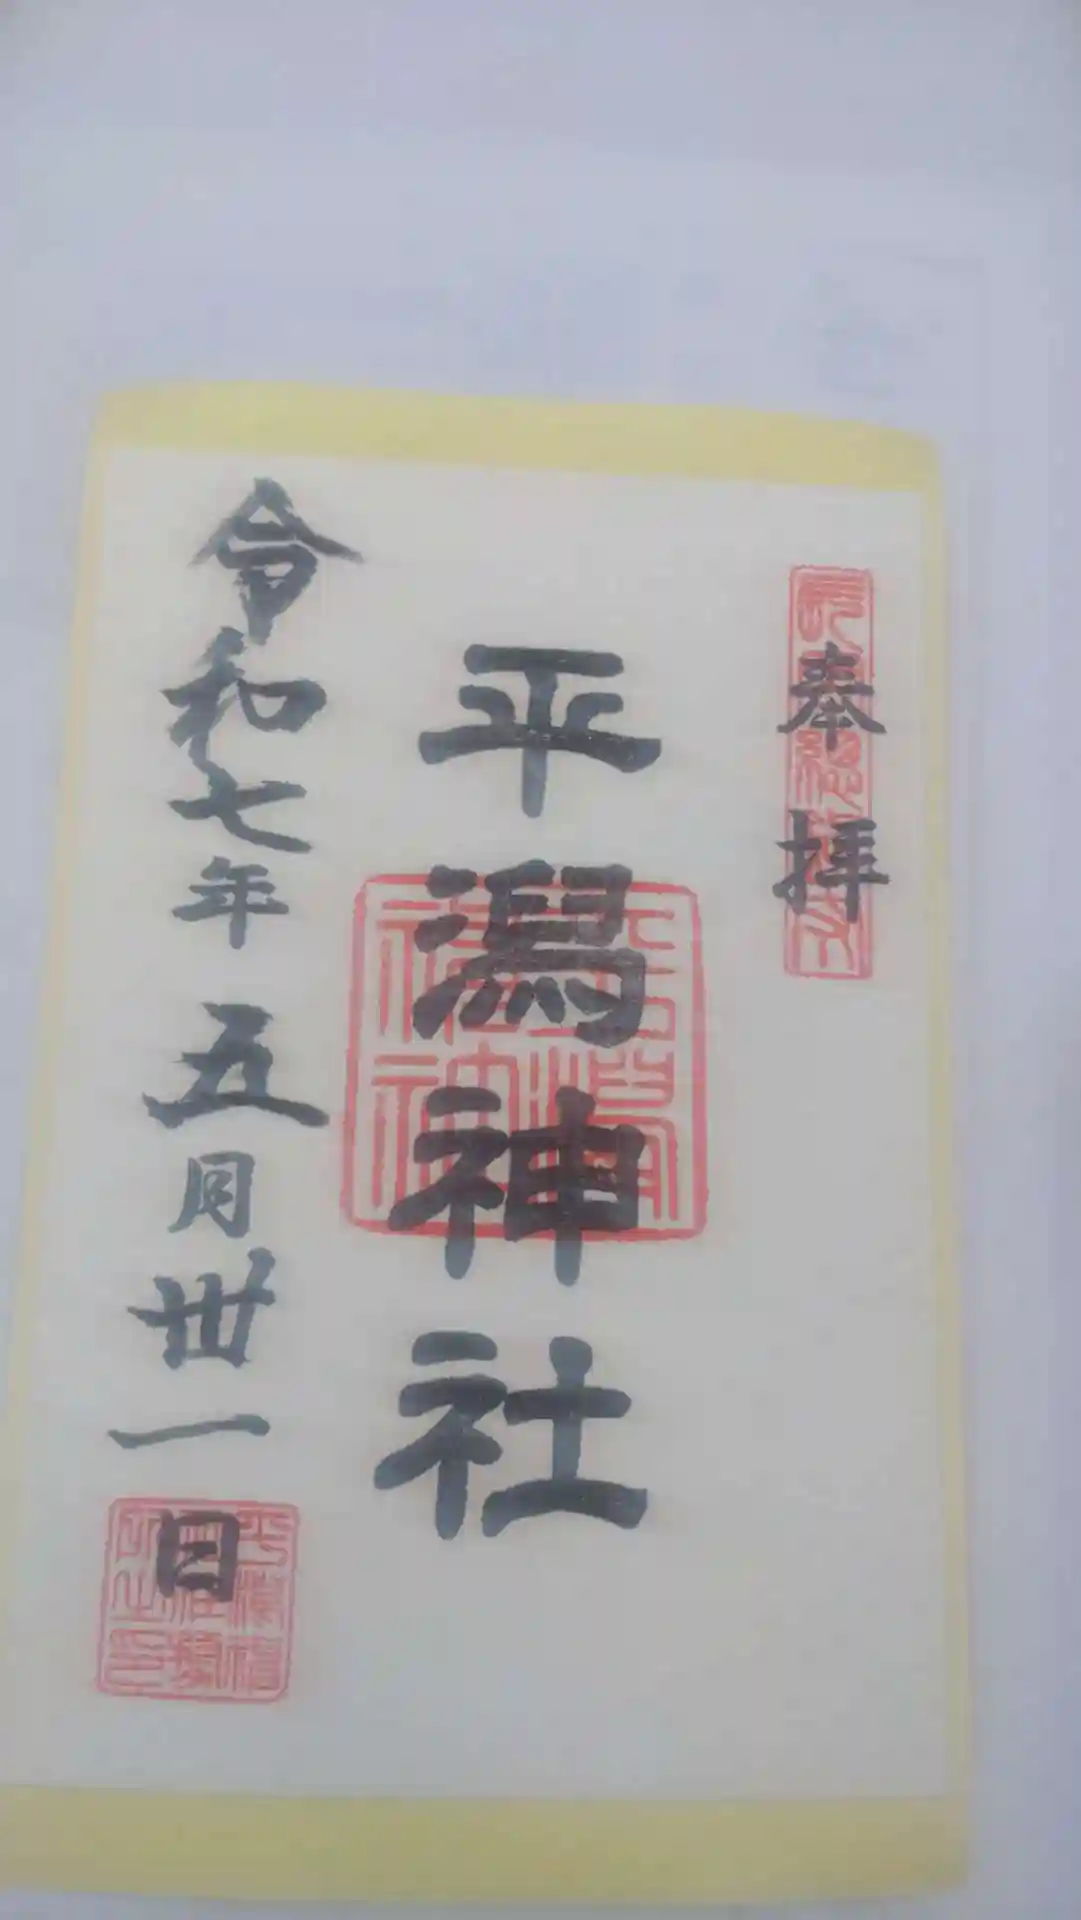 奉拝
平潟神社
令和七年五月丗一日